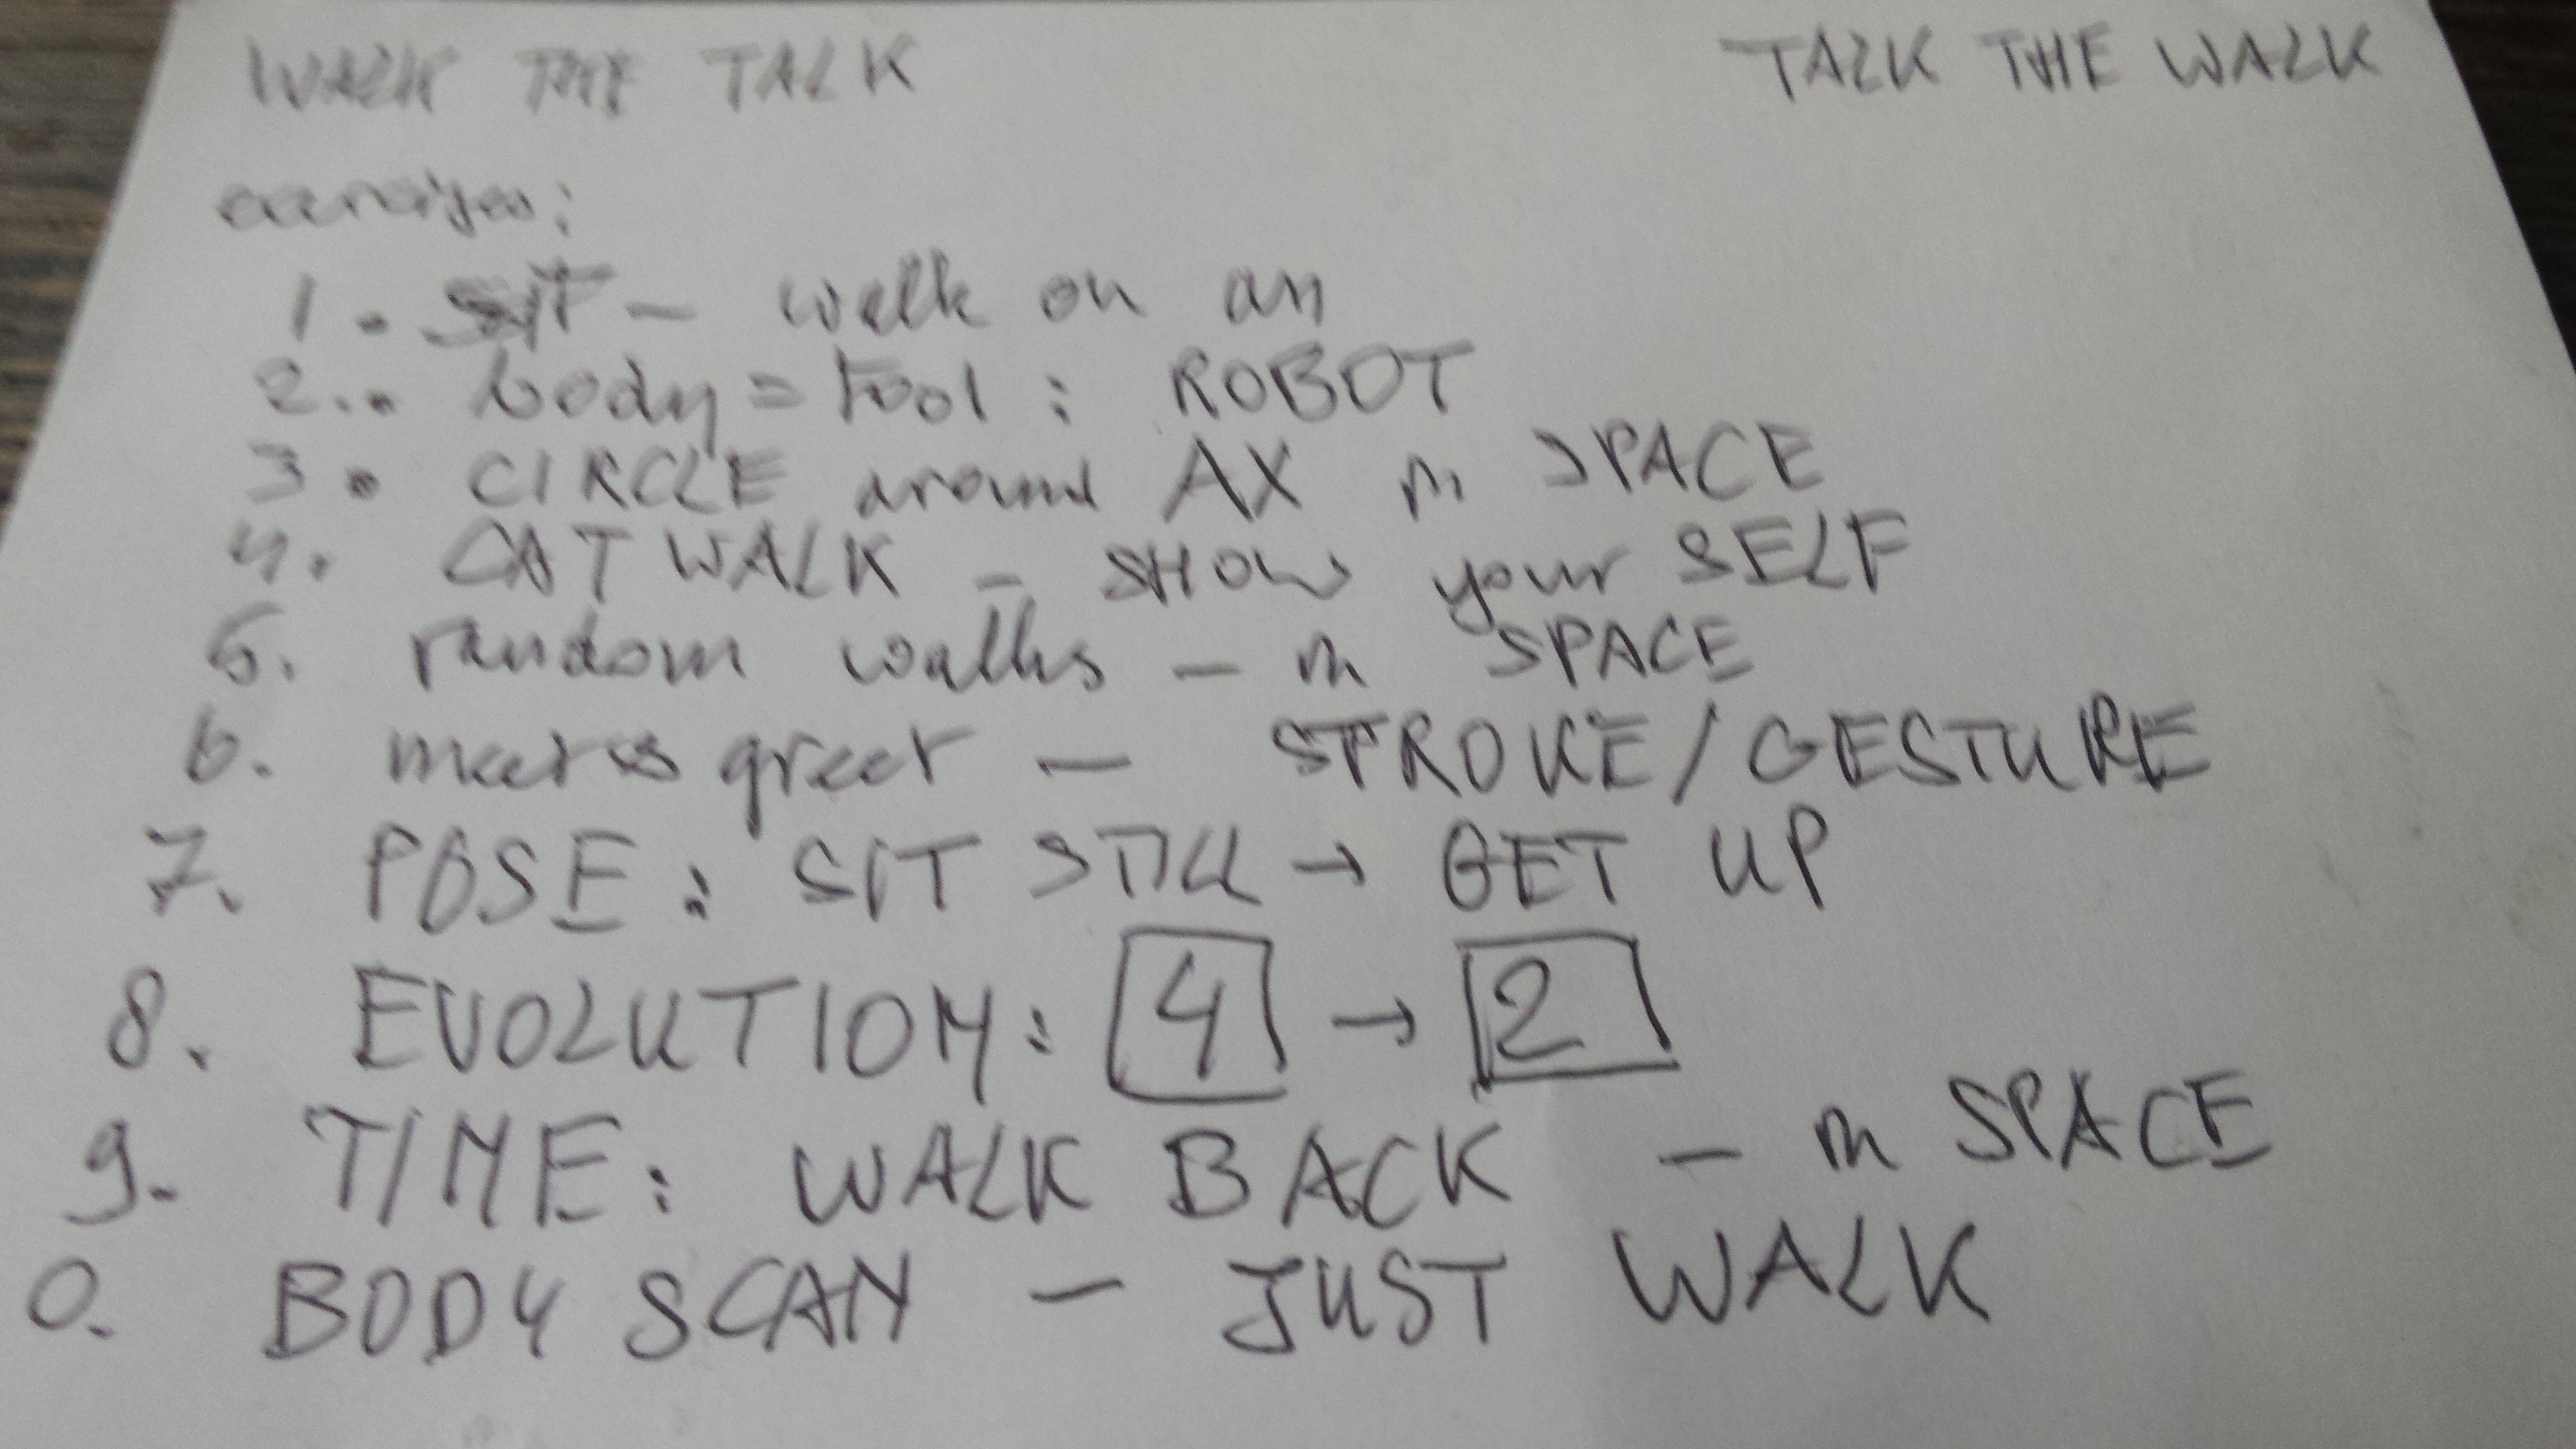 WALK THE TALK TALK THE WALK
exercises:
1. SIT - walk on an
2. body = tool : ROBOT
3. CIRCLE around AX in SPACE
4. CAT WALK - SHOW your SELF
5. random walks - in SPACE
6. meet & greet - STROKE/GESTURE
7. POSE: SIT STILL → GET UP
8. EVOLUTION: 4 → 2
9. TIME: WALK BACK - in SPACE
0. BODY SCAN - JUST WALK